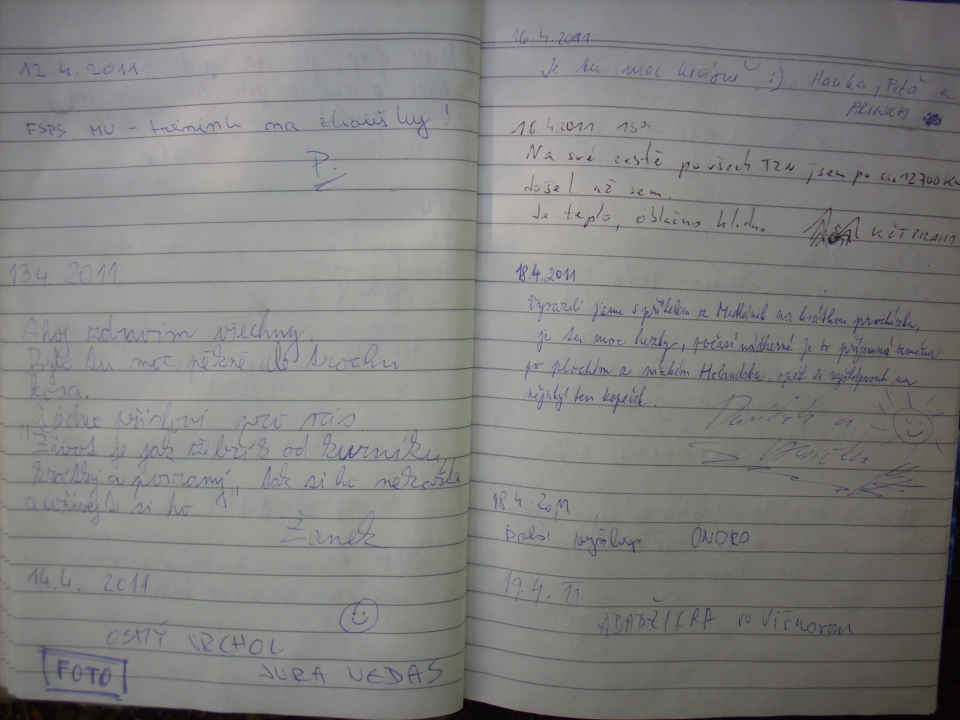 12.4.2011
FSPS MU - trénink na zkoušky!
P.
13.4.2011
Ahoj zdravím všechny.
Bylo tu moc pěkné ale trochu
kosa.
Jedno přísloví pro vás
„Život je jak žebřík od kurníku„
krátký a posraný„ tak si ho nekažte
a užívejte si ho
Žanek
14.4. 2011
OSMÝ VRCHOL
JURA NEDAS
FOTO
16.4.2011
Je tu moc krásně :) Hanka, Péťa a
16.4.2011 15°°
Na své cestě po všech TZN jsem po cca 12700 Km
došel až sem.
Je teplo, oblačno klidno.
KČT PRAHA
18.4.2011
Vyrazili jsme s přítelem z Medlánek na krátkou procházku,
je tu moc hezky, počasí nádherné je to příjemná změna
po plochém a nízkém Holandsku opět si vyšlápnout na
nějaký ten kopeček.
a
18.4.2011
Další výšlap ONDRA
19.4.11